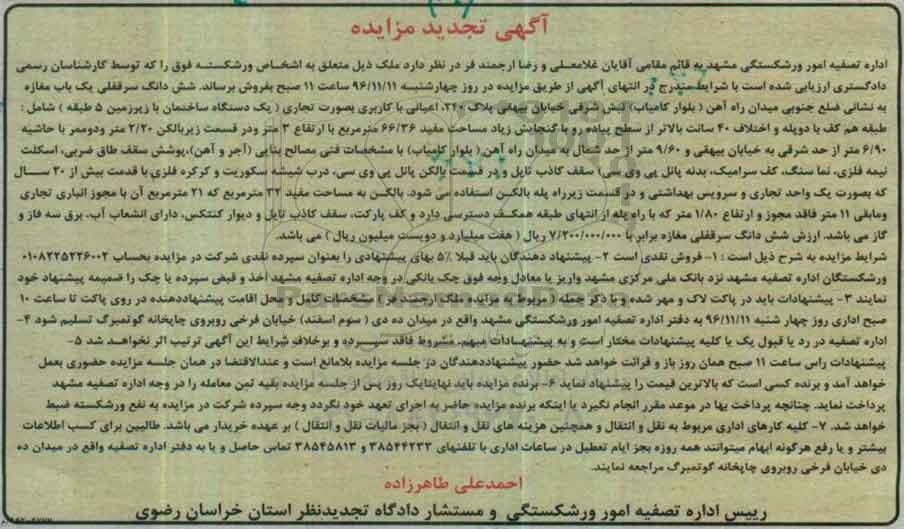 آگهی تجدید مزایده
اداره تصفیه امور ورشکستگی مشهد به قائم مقامی آقایان غلامعلی و رضا ارجمند فر در نظر دارد ملک ذیل متعلق به اشخاص ورشکسته فوق را که توسط کارشناسان رسمی
دادگستری ارزیابی شده است با شرایط مندرج در انتهای آگهی از طریق مزایده در روز چهارشنبه ۹۶/۱۱/۱۱ ساعت ۱۱ صبح بفروش برساند. شش دانگ سرقفلی یک باب مغازه
به نشانی ضلع جنوبی میدان راه آهن (بلوار کامیاب) نبش شرقی خیابان بیهقی پلاک ۲۴۰، اعیانی با کاربری بصورت تجاری (یک دستگاه ساختمان با زیرزمین ۵ طبقه) شامل:
طبقه هم کف با دوپله و اختلاف ۴۰ سانت بالاتر از سطح پیاده رو با گنجایش زیاد مساحت مفید ۶۶/۳۶ مترمربع با ارتفاع ۳ متر ودر قسمت زیربالکن ۲/۲۰ متر ودوممر با حاشیه
۶/۹۰ متر از حد شرقی به خیابان بیهقی و ۹/۶۰ متر از حد شمال به میدان راه آهن (بلوار کامیاب) با مشخصات فنی مصالح بنایی (آجر و آهن)، پوشش سقف طاق ضربی، اسکلت
نیمه فلزی، نما سنگ، کف سرامیک، بدنه پانل پی وی سی) سقف کاذب تایل و در قسمت بالکن پانل پی وی سی، درب شیشه سکوریت و کرکره فلزی با قدمت بیش از ۳۰ سال
که بصورت یک واحد تجاری و سرویس بهداشتی و در قسمت زیرراه پله بالکن استفاده می شود. بالکن به مساحت مفید ۳۲ مترمربع که ۲۱ مترمربع آن با مجوز انباری تجاری
ومابقی ۱۱ متر فاقد مجوز و ارتفاع ۱/۸۰ متر که با راه پله از انتهای طبقه همکف دسترسی دارد و کف پارکت، سقف کاذب تایل و دیوار کنتکس، دارای انشعاب آب، برق سه فاز و
گاز می باشد. ارزش شش دانگ سرقفلی مغازه برابر با ۷/۲۰۰/۰۰۰/۰۰۰ ریال (هفت میلیارد و دویست میلیون ریال) می باشد.
شرایط مزایده به شرح ذیل است: ۱- فروش نقدی است ۲- پیشنهاد دهندگان باید قبلا ۵٪ بهای پیشنهادی را بعنوان سپرده نقدی شرکت در مزایده بحساب ۰۱۰۸۲۲۵۲۲۶۰۰۲
ورشکستگان اداره تصفیه مشهد نزد بانک ملی مرکزی مشهد واریز یا معادل وجه فوق چک بانکی در وجه اداره تصفیه مشهد أخذ و قبض سپرده یا چک را ضمیمه پیشنهاد خود
نمایند ۳- پیشنهادات باید در پاکت لاک و مهر شده و با ذکر جمله (مربوط به مزایده ملک ارجمند فر) مشخصات کامل و محل اقامت پیشنهاددهنده در روی پاکت تا ساعت ۱۰
صبح اداری روز چهار شنبه ۹۶/۱۱/۱۱ به دفتر اداره تصفیه امور ورشکستگی مشهد واقع در میدان ده دی (سوم اسفند) خیابان فرخی روبروی چاپخانه گوتمبرگ تسلیم شود ۴-
اداره تصفیه در رد یا قبول یک یا کلیه پیشنهادات مختار است و به پیشنهادات مبهم، مشروط فاقد سپرده و برخلاف شرایط این آگهی ترتیب اثر نخواهد شد ۵-
پیشنهادات راس ساعت ۱۱ صبح همان روز باز و قرائت خواهد شد حضور پیشنهاددهندگان در جلسه مزایده بلامانع است و عندالاقتضا در همان جلسه مزایده حضوری بعمل
خواهد آمد و برنده کسی است که بالاترین قیمت را پیشنهاد نماید ۶- برنده مزایده باید نهایتایک روز پس از جلسه مزایده بقیه ثمن معامله را در وجه اداره تصفیه مشهد
پرداخت نماید. چنانچه پرداخت بها در موعد مقرر انجام نگیرد یا اینکه برنده مزایده حاضر به اجرای تعهد خود نگردد وجه سپرده شرکت در مزایده به نفع ورشکسته ضبط
خواهد شد. ۷- کلیه کارهای اداری مربوط به نقل و انتقال و همچنین هزینه های نقل و انتقال (بجز مالیات نقل و انتقال) بر عهده خریدار می باشد. طالبین برای کسب اطلاعات
بیشتر و یا رفع هرگونه ابهام میتوانند همه روزه بجز ایام تعطیل در ساعات اداری با تلفنهای ۳۸۵۴۴۲۳۳ و ۳۸۵۴۵۸۱۳ تماس حاصل و یا به دفتر اداره تصفیه واقع در میدان ده
دی خیابان فرخی روبروی چاپخانه گوتمبرگ مراجعه نمایند.
احمدعلی طاهرزاده
رییس اداره تصفیه امور ورشکستگی و مستشار دادگاه تجدیدنظر استان خراسان رضوی